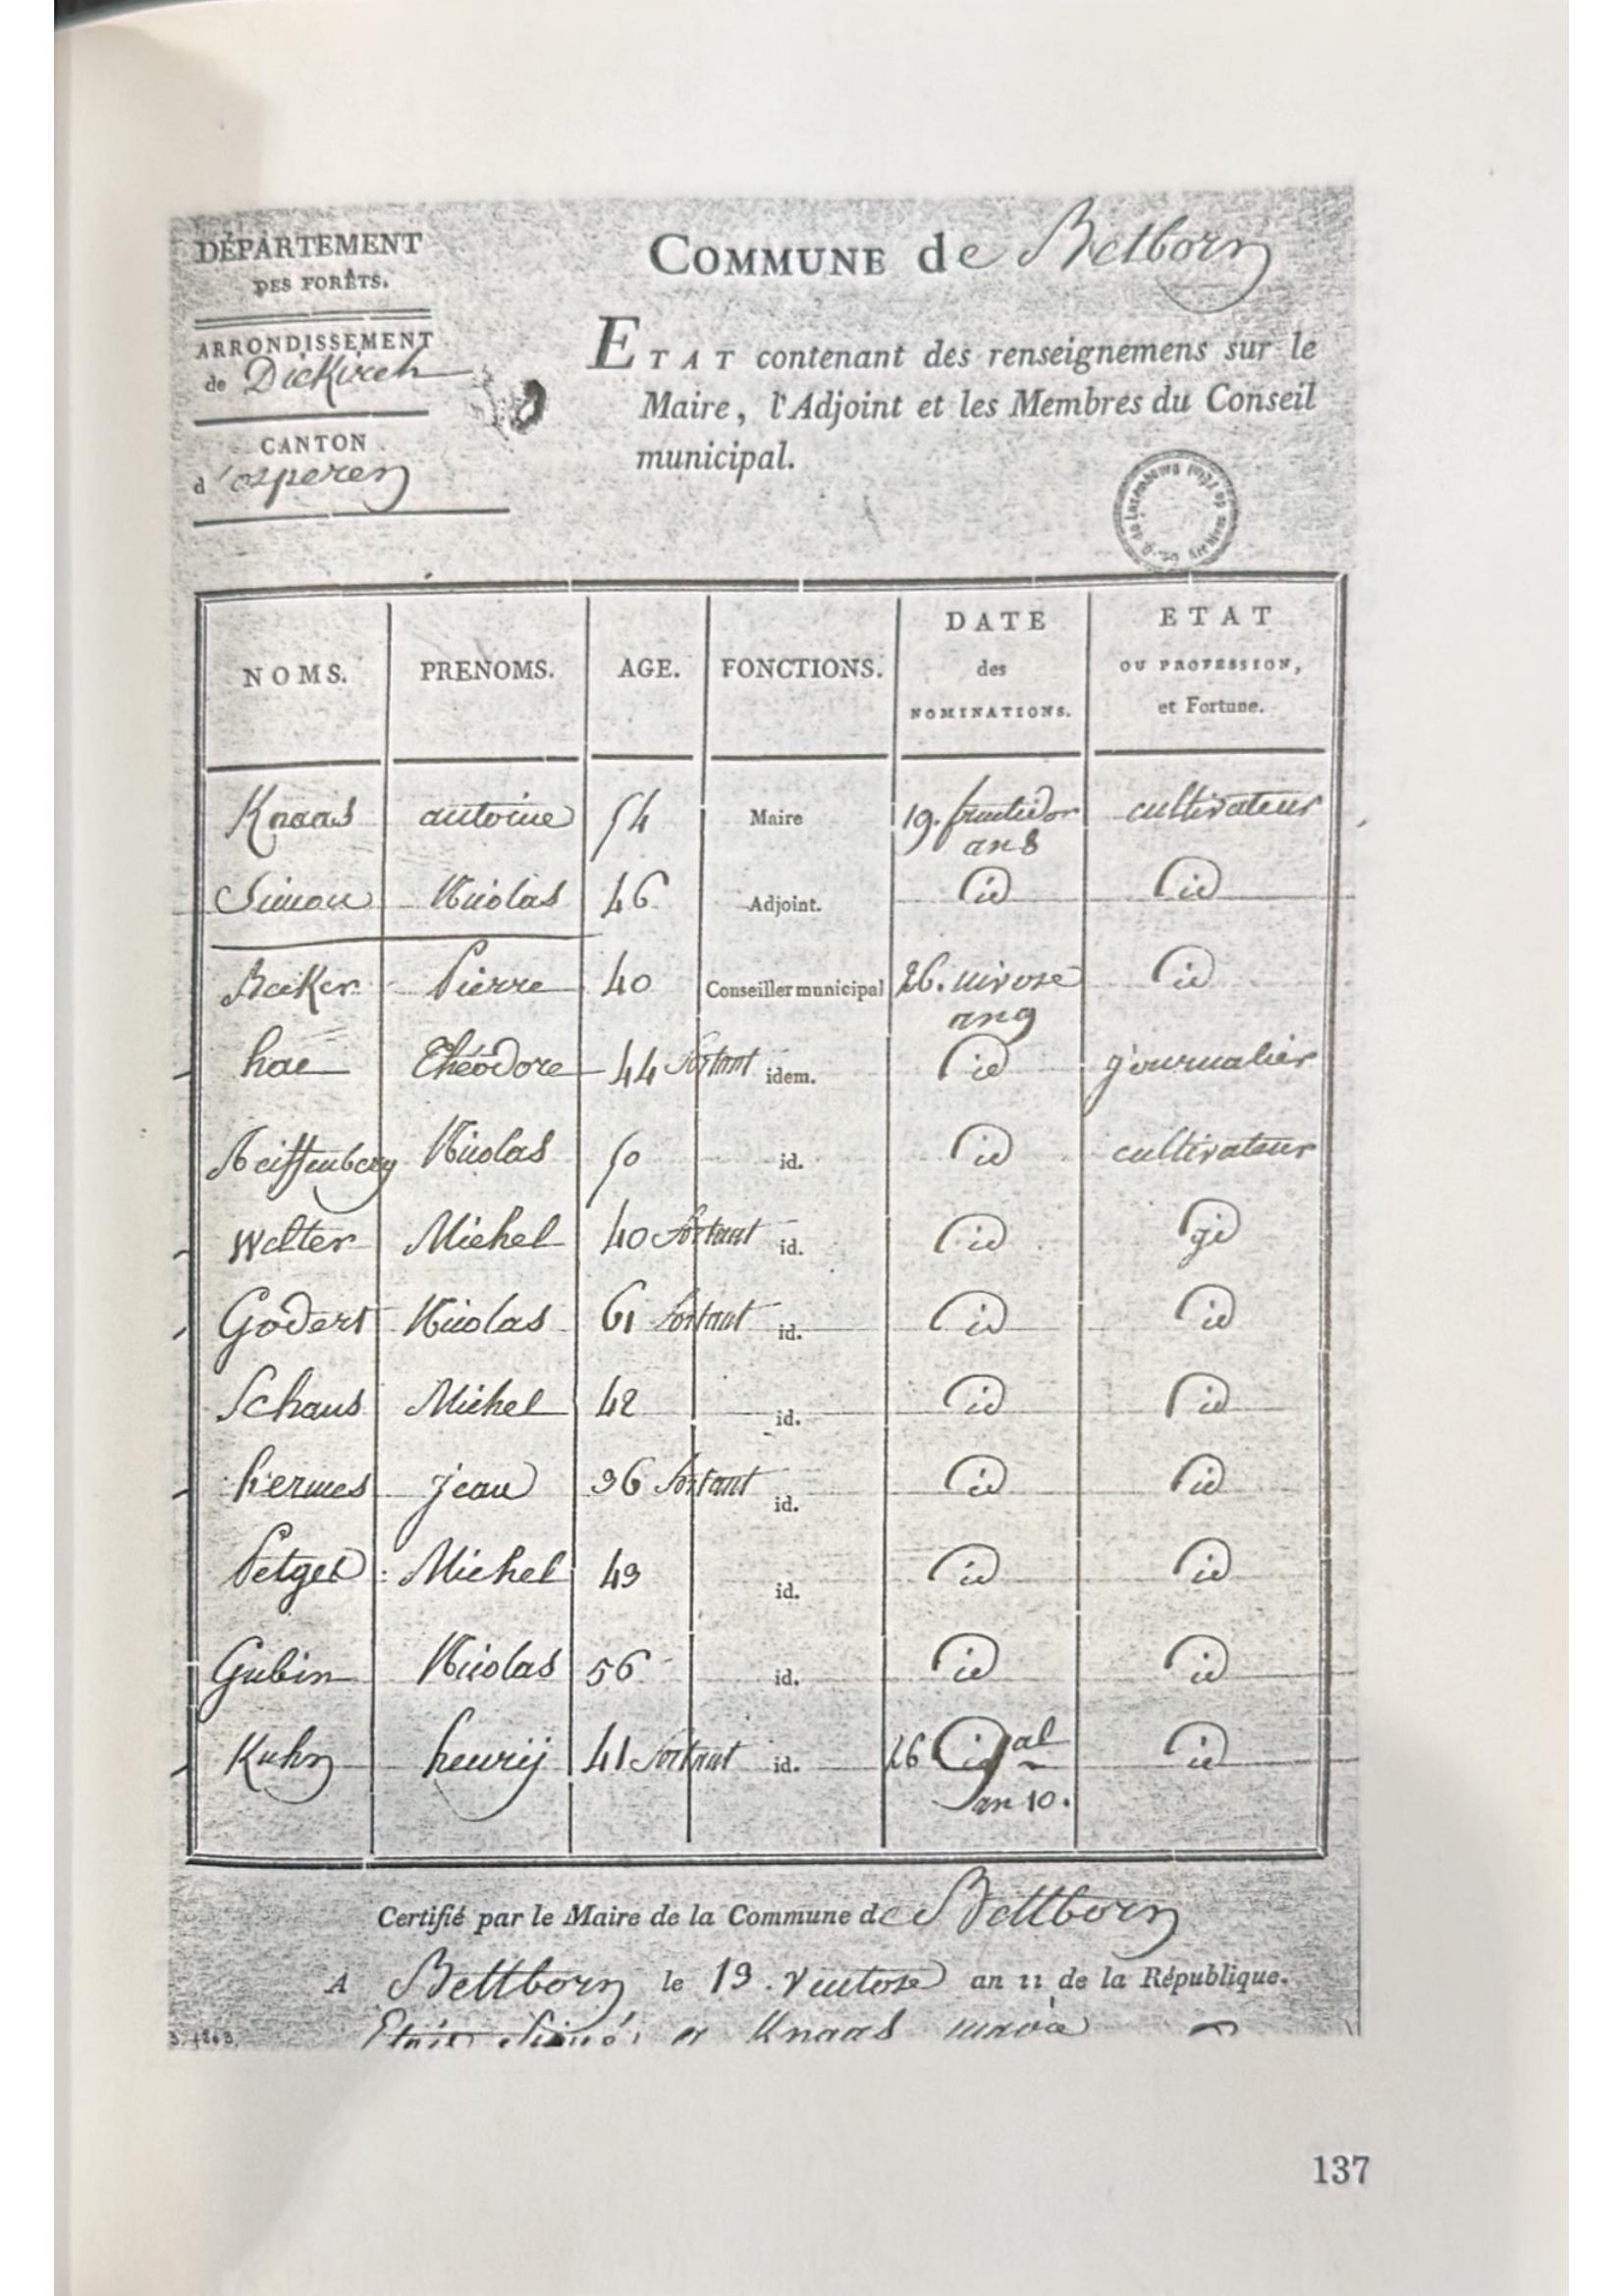 DÉPARTEMENT
DES FORÊTS.
ARRONDISSEMENT
de Dickirch
CANTON
d'osperen
COMMUNE de Betborn
ETAT contenant des renseignemens sur le
Maire, l'Adjoint et les Membres du Conseil
municipal.
NOMS. PRENOMS. AGE. FONCTIONS. DATE des NOMINATIONS. ETAT OU PROFESSION, et Fortune.
Knaas antoine 54 Maire 19. fructidor an 8 cultivateur
Simon Nicolas 46 Adjoint. id id
Beiker Pierre 40 Conseiller municipal 26. nivose an 9 id
hae Théodore 44 sortant idem. id journalier
Reiffenberg Nicolas 50 id. id cultivateur
Welter Michel 40 sortant id. id id
Godert Nicolas 61 sortant id. id id
Schaus Michel 42 id. id id
hermes jean 36 sortant id. id id
Petges Michel 49 id. id id
Gubin Nicolas 56 id. id id
Kuhn henrij 41 sortant id. 26 gal an 10. id
Certifié par le Maire de la Commune de Bettborn
A Bettborn le 19. Ventose an 11 de la République.
Etoit Signé, a Knaas maire
137